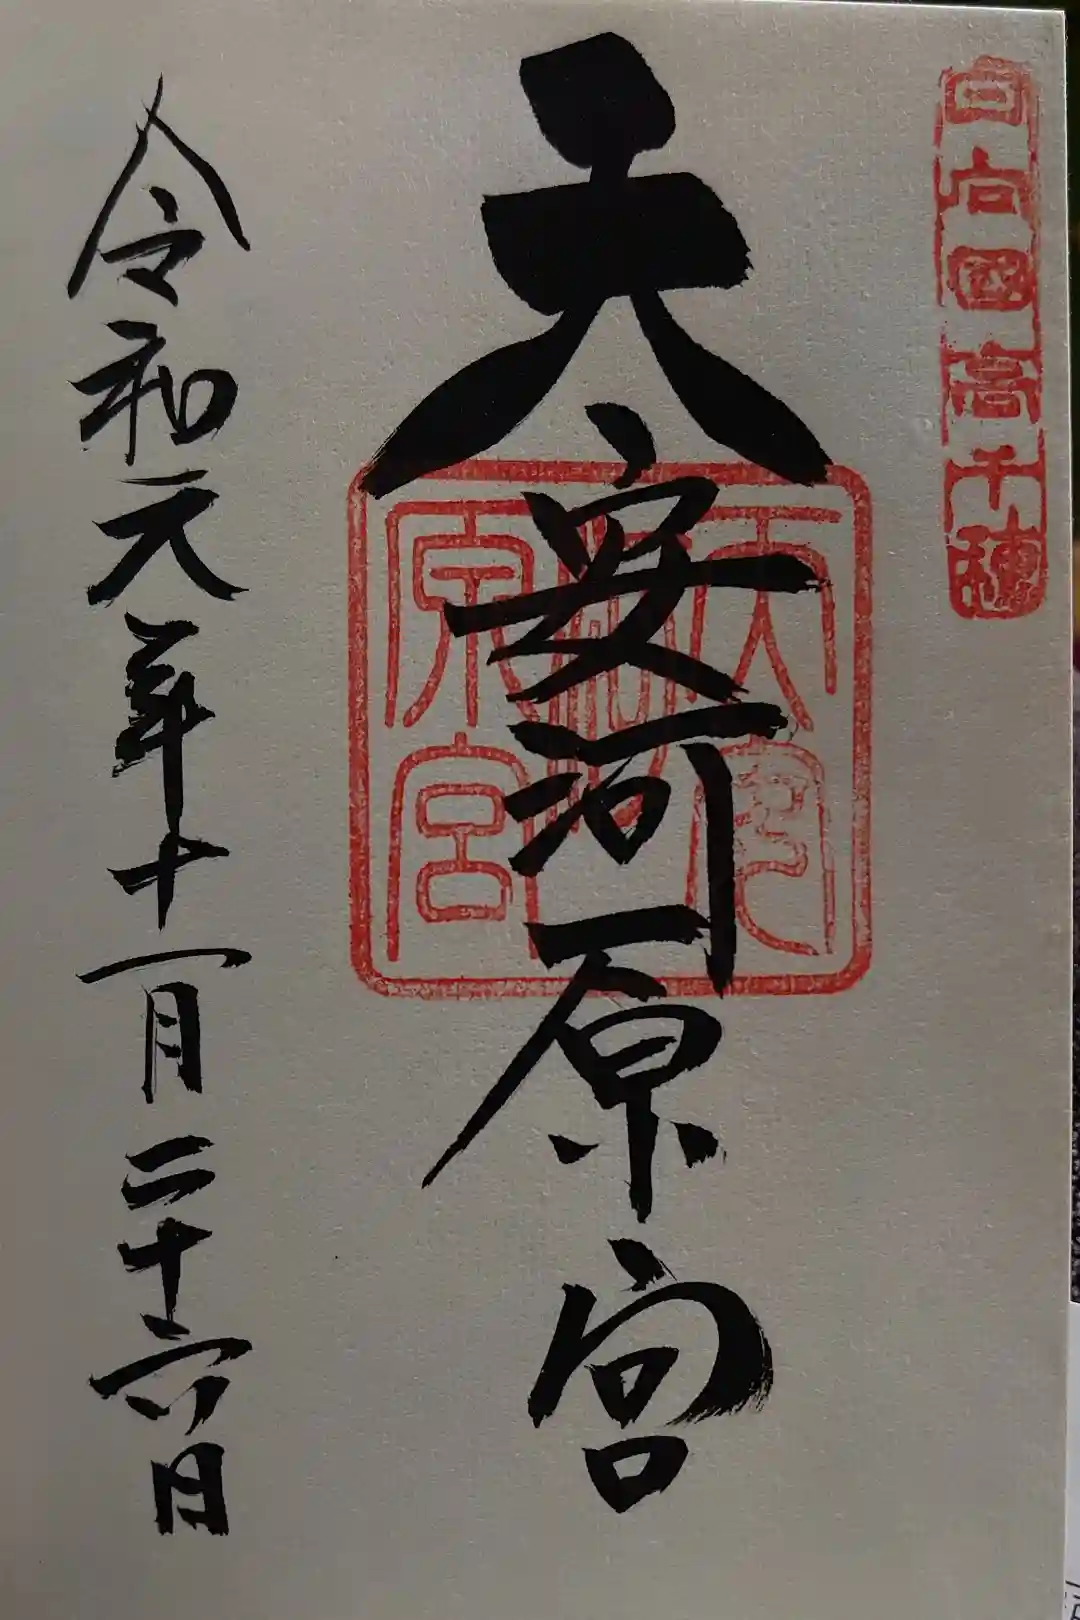 日向國高千穂
天安河原宮
天安河原宮
令和元年十一月二十六日